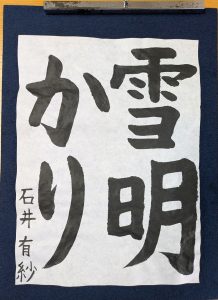 雪明
かり
石井有紗